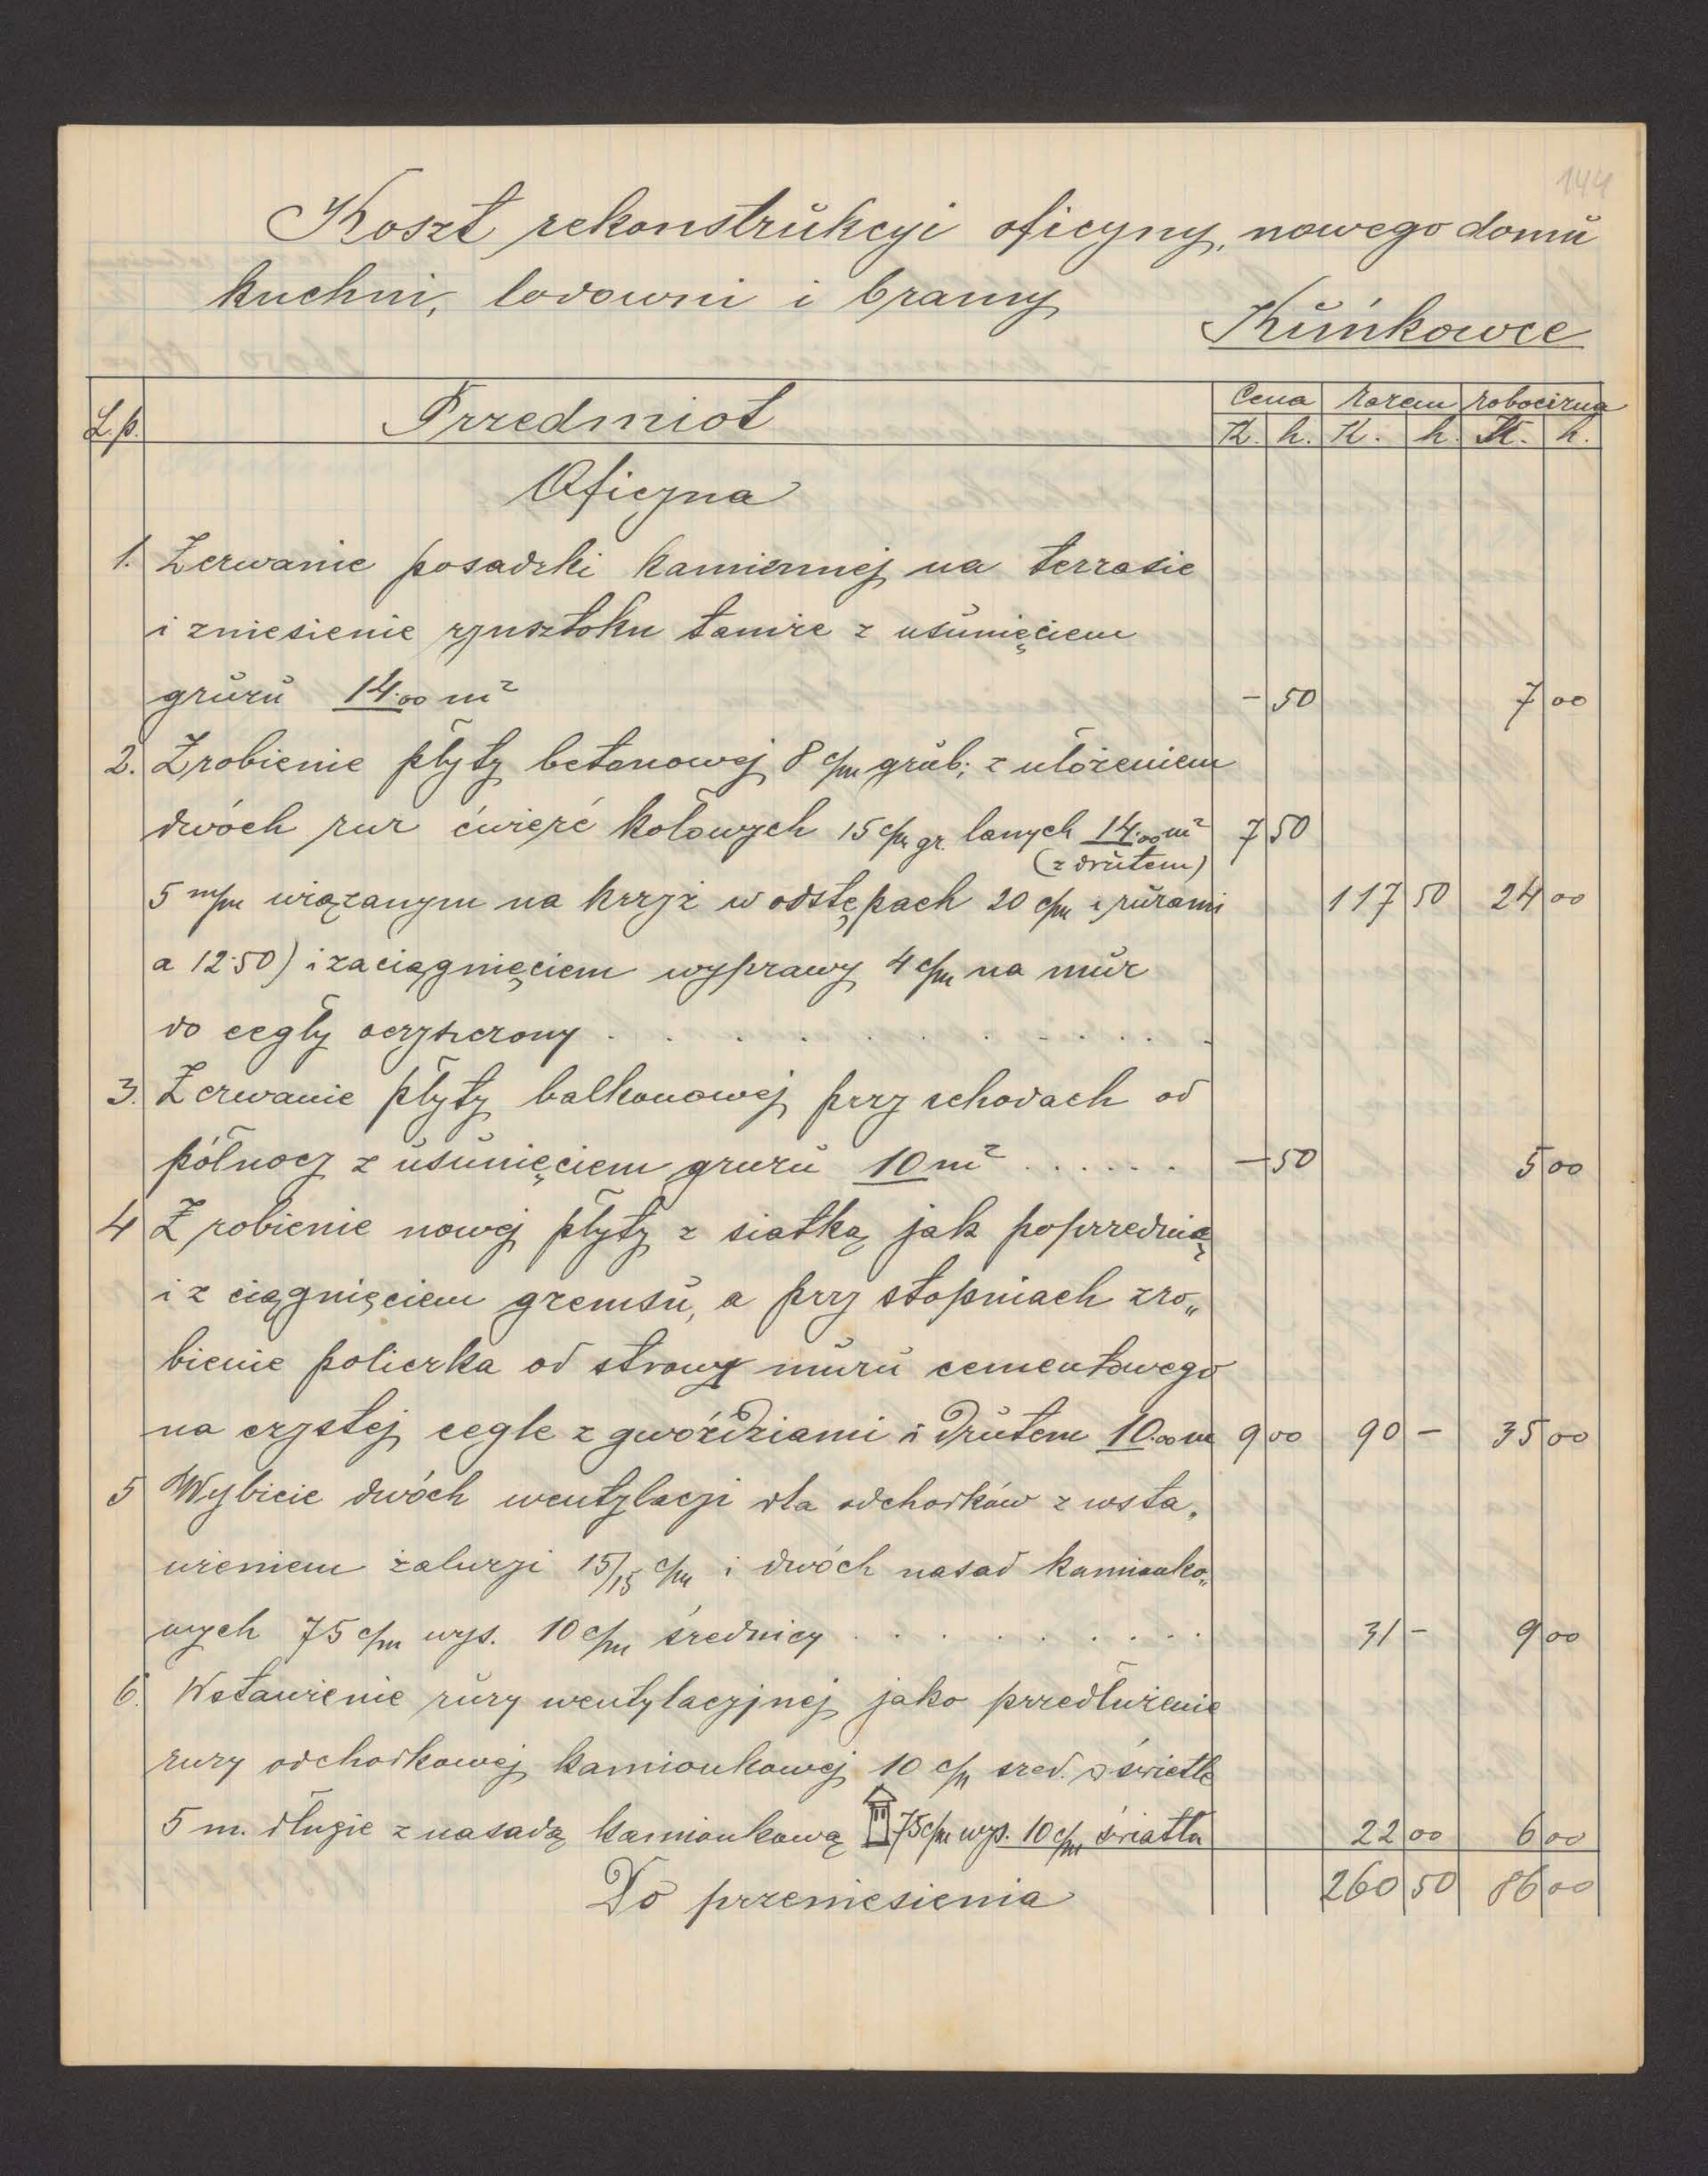 144
Koszt rekonstrukcyi oficyny, nowego domu
kuchni, lodowni i bramy
Kuńkowce
L.p. Przedmiot Cena razem robocizna
K. h. K. h. K. h.
Oficyna
1. Zerwanie posadzki kamiennej na terrasie
i zniesienie rynsztoku tamże z usunięciem
gruzu 14.00 m² - 50 7 00
2. Zrobienie płyty betonowej 8 c/m grub; z ułożeniem
dwóch rur ćwierć kołowych 15 c/m gr. lanych 14.00 m² 7 50
(z drutem)
5 m/m wiązanym na krzyż w odstępach 20 c/m z rurami 117 50 24 00
a 12.50) i zaciągnięciem wyprawy 4 c/m na mur
do cegły oczyszczony . . . . . . . . . .
3. Zerwanie płyty balkonowej przy schodach od
północy z usunięciem gruzu 10 m² . . . . . . - 50 5 00
4 Zrobienie nowej płyty z siatką jak poprzednią
i z ciągnięciem gzemsu, a przy stopniach zro„
bienie policzka od strony muru cementowego
na czystej cegle z gwoździami i drutem 10.00 m 9 00 90 - 35 00
5 Wybicie dwóch wentylacji dla odchodków z wsta„
wieniem żaluzji 15/15 c/m i dwóch nasad kamionko„
wych 75 c/m wys. 10 c/m średnicy . . . . . . . . . . 31 - 9 00
6. Wstawienie rury wentylacyjnej jako przedłużenie
rury odchodkowej kamionkowej 10 c/m sred. w świetle
5 m. długie z nasadą kamionkową 75 c/m wys. 10 c/m światła 22 00 6 00
Do przeniesienia 260 50 86 00